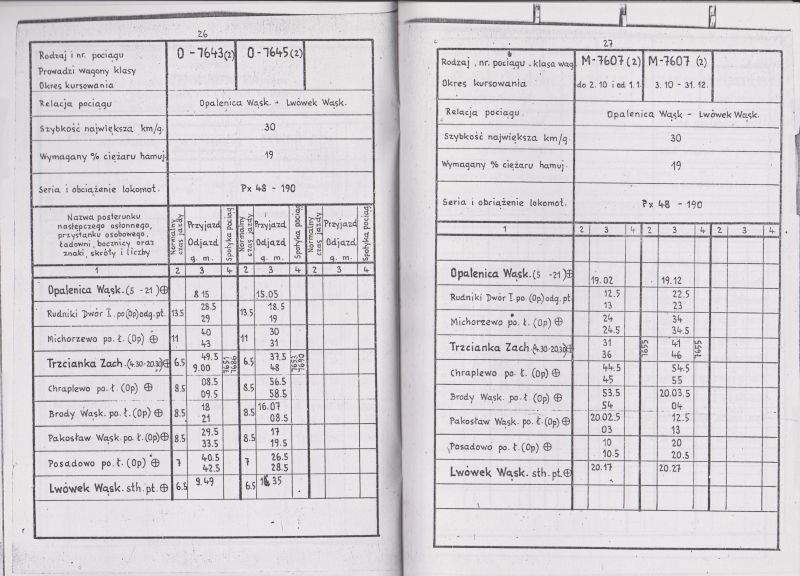 26
Rodzaj i nr. pociągu O-7643(2) O-7645(2)
Prowadzi wagony klasy
Okres kursowania
Relacja pociągu Opalenica Wąsk. - Lwówek Wąsk.
Szybkość największa km/g. 30
Wymagany % ciężaru hamuj. 19
Seria i obciążenie lokomot. Px 48 - 190
Nazwa posterunku
następczego osłonnego,
przystanku osobowego,
ładowni, bocznicy oraz
znaki, skróty i liczby
Normalny czas jazdy Przyjazd Odjazd g. m. Spotyka pociąg Normalny czas jazdy Przyjazd Odjazd g. m. Spotyka pociąg Normalny czas jazdy Przyjazd Odjazd g. m. Spotyka pociąg
1 2 3 4 2 3 4 2 3 4
Opalenica Wąsk. (5 -21) ⊕ 8 15 15.05
28.5 18.5
Rudniki Dwór I. po (Op) odg. pt. 13.5 29 13.5 19
40 30
Michorzewo po. ł. (Op) ⊕ 11 43 11 31
49.5 37.5
Trzcianka Zach. (4.30-20.30) ⊕ 6.5 9.00 7651 7686 6.5 48 7653 7690
08.5 56.5
Chraplewo po. ł. (Op) ⊕ 8.5 09.5 8.5 58.5
18 16.07
Brody Wąsk. po. ł. (Op) ⊕ 8.5 21 8.5 08.5
29.5 17
Pakosław Wąsk. po. ł. (Op) ⊕ 8.5 33.5 8.5 19.5
40.5 26.5
Posadowo po. ł. (Op) ⊕ 7 42.5 7 28.5
Lwówek Wąsk. sth. pt. ⊕ 6.5 9.49 6.5 16 35
27
Rodzaj . nr. pociągu . klasa wag. M-7607 (2) M-7607 (2)
Okres kursowania do 2. 10 i od 1.1. 3. 10 - 31. 12.
Relacja pociągu Opalenica Wąsk - Lwówek Wąsk.
Szybkość największa km/g 30
Wymagany % ciężaru hamuj. 19
Seria i obriążenie lokomot. Px 48 - 190
1 2 3 4 2 3 4 2 3 4
Opalenica Wąsk. (5 -21) ⊕ 19.02 19.12
12.5 22.5
Rudniki Dwór I. po (Op) odg. pt 13 23
24 34
Michorzewo po. ł. (Op) ⊕ 24.5 34.5
31 41
Trzcianka Zach (4.30-20.30) ⊕ 36 7655 46 7655
44.5 54.5
Chraplewo po. ł. (Op) ⊕ 45 55
53.5 20.03.5
Brody Wąsk. po. ł. (Op) ⊕ 54 04
20.02.5 12.5
Pakosław Wąsk. po. ł. (Op) ⊕ 03 13
10 20
Posadowo po. ł. (Op) ⊕ 10.5 20.5
Lwówek Wąsk. sth. pt. ⊕ 20.17 20.27